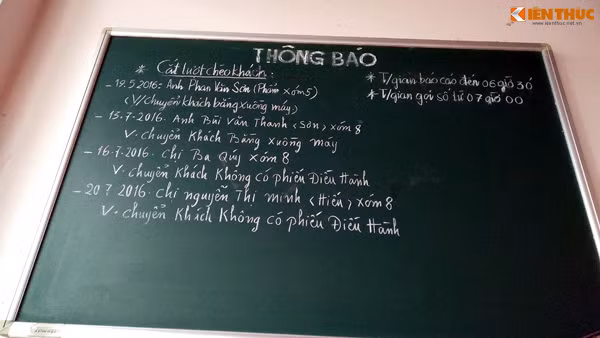 KIẾN THỨC
www.kienthuc.net.vn
THÔNG BÁO
* Cắt lượt chèo khách:
- 19.5.2016: Anh Phan Văn Sơn (Phẩm xóm 5)
(V/chuyển khách bằng xuồng máy)
- 15-7-2016. Anh Bùi Văn Thanh (Sơn) xóm 8
V. chuyển Khách Bằng Xuồng máy
- 16.7-2016. Chị Ba Qúy xóm 8
V. chuyển Khách Không Có phiếu Điều Hành
- 20.7.2016. Chị nguyễn Thị minh (Hiếu) xóm 8
V. chuyển Khách Không có phiếu Điều Hành
* T/gian báo cáo đến 06 giờ 30
* T/gian gọi số từ 07 giờ 00